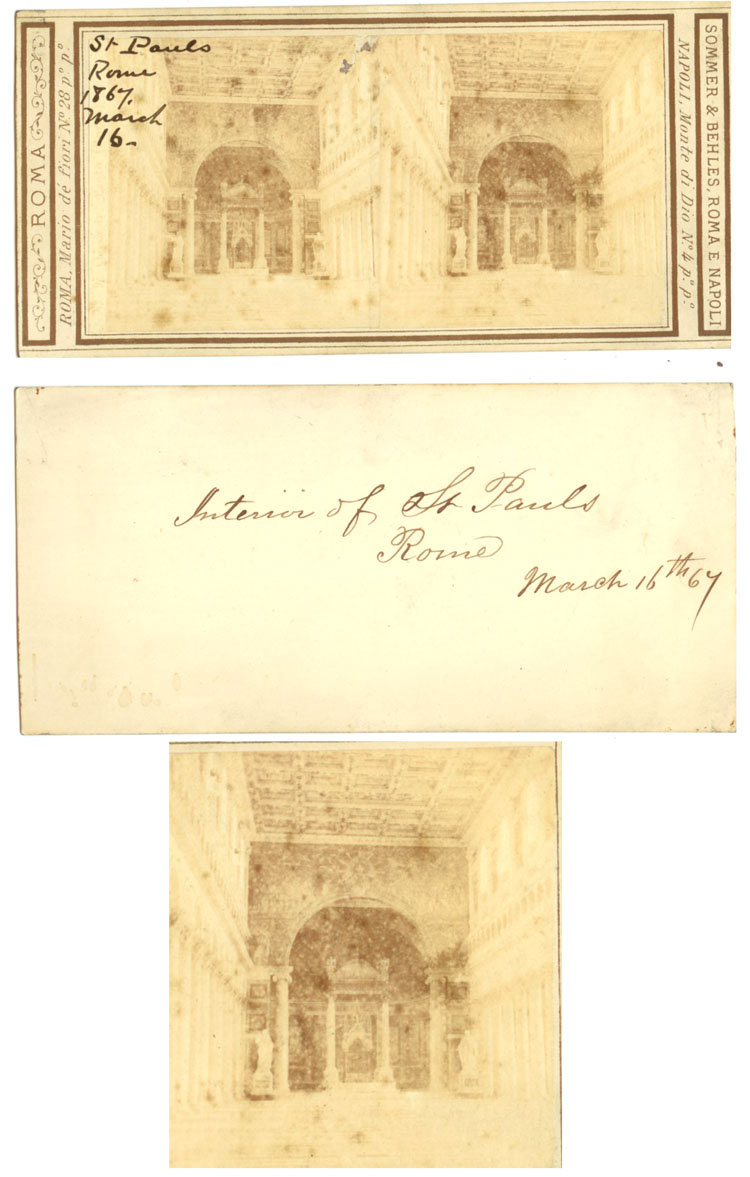 St Pauls
Rome
1867.
March
16-
ROMA
ROMA, Mario dé fiori Nº 28 pº pº
SOMMER & BEHLES, ROMA E NAPOLI
NAPOLI, Monte di Dio Nº 4 pº pº
Interior of St Pauls
Rome
March 16th 67